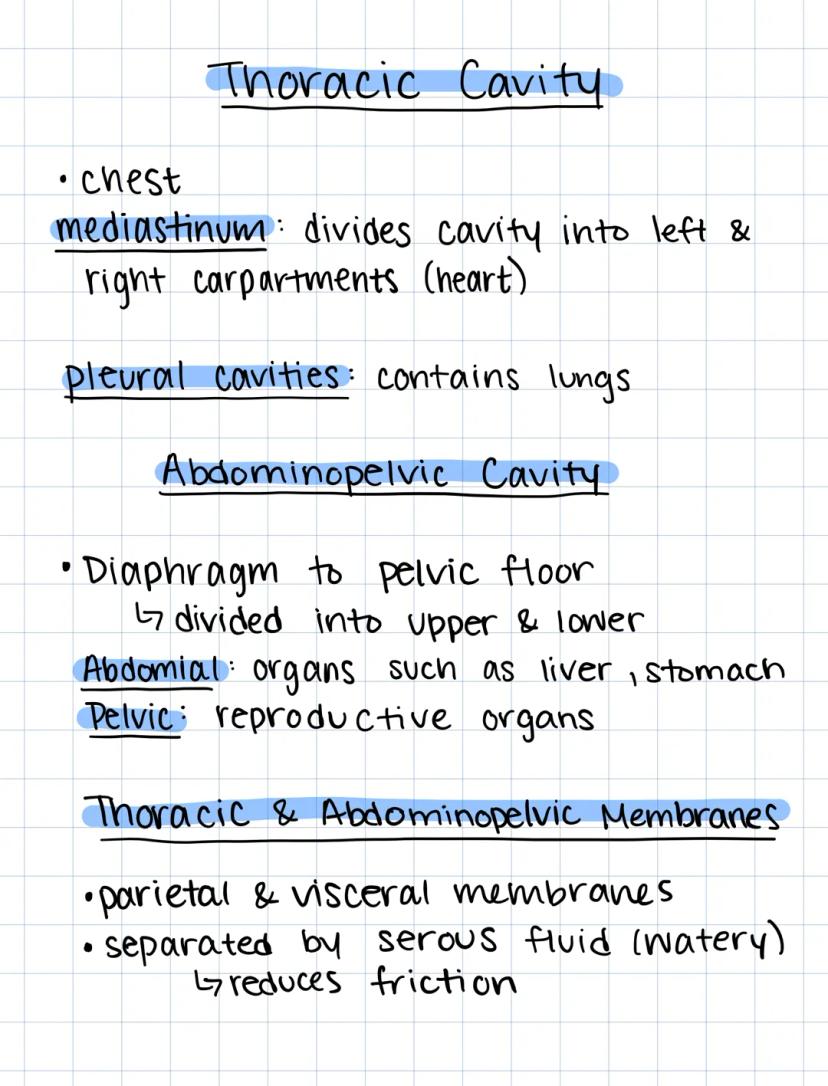 Thoracic Cavity
• chest
mediastinum: divides cavity into left &
right carpartments (heart)
pleural cavities: contains lungs
Abdominopelvic Cavity
• Diaphragm to pelvic floor
↳ divided into upper & lower
Abdomial: organs such as liver, stomach
Pelvic: reproductive organs
Thoracic & Abdominopelvic Membranes
• parietal & visceral membranes
• separated by serous fluid (watery)
↳ reduces friction